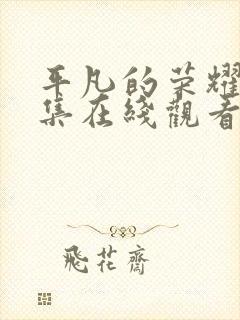 平凡的荣耀
集在綫觀看
飛花齋